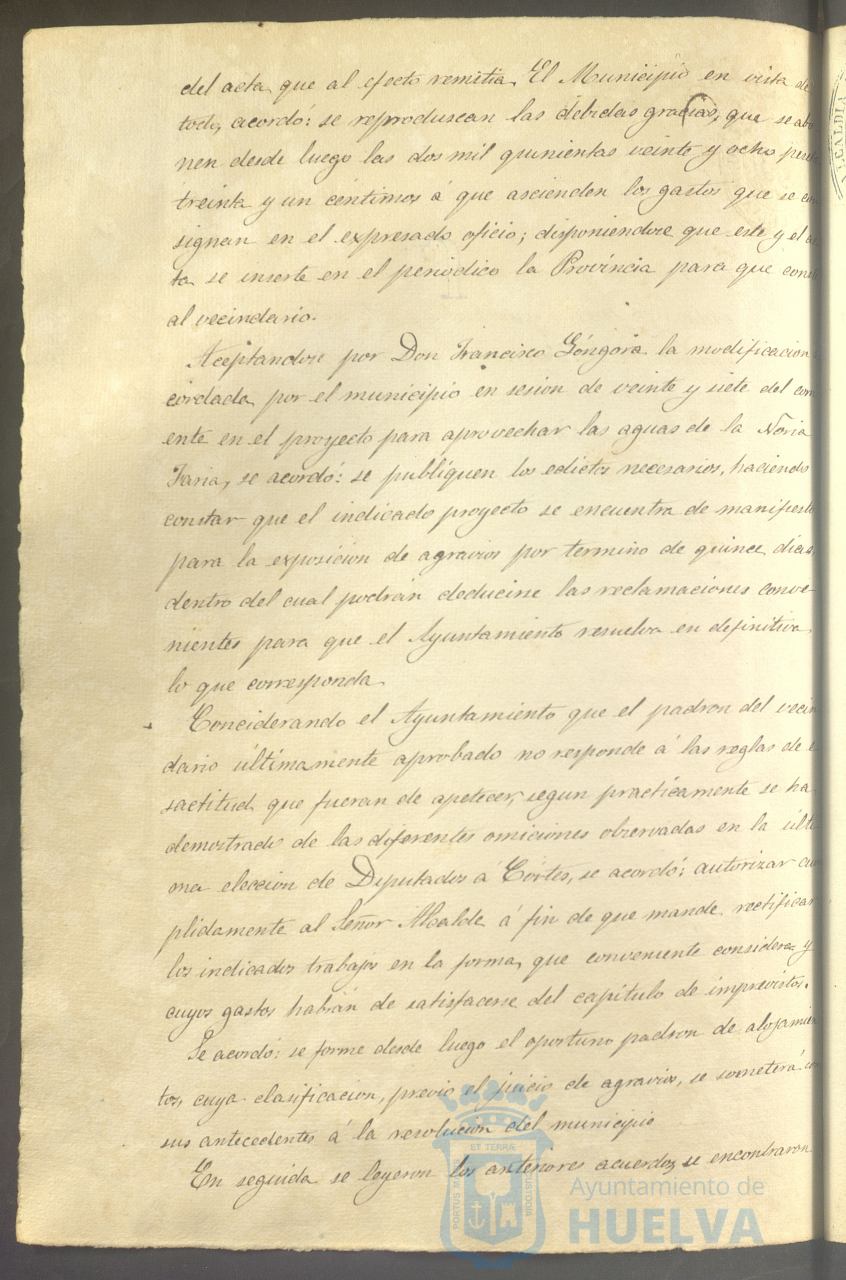 del acta que al efecto remitia. El Municipio en vista de
todo, acordó: se reproduscan las debidas gracias, que se abo
nen desde luego las dos mil quinientas veinte y ocho peset
treinta y un céntimos á que ascienden los gastos que se con
signan en el expresado oficio; disponiendose que este y el ac
ta se inserte en el periódico la Provincia para que conste
al vecindario.
Aceptandose por Don Francisco Góngora la modificacion a
cordada por el municipio en sesion de veinte y siete del corri
ente en el proyecto para aprovechar las aguas de la Noria
Faria, se acordó: se publíquen los edictos necesarios, haciendo
constar que el indicado proyecto se encuentra de manifiesto
para la exposicion de agravios por termino de quince dias,
dentro del cual podrán deducirse las reclamaciones conve-
nientes para que el Ayuntamiento resuelva en definitiva
lo que corresponda.
Conciderando el Ayuntamiento que el padron del vecin
dario últimamente aprobado no responde á las reglas de e
sactitud que fueran de apetecer, segun practicamente se ha
demostrado de las diferentes omiciones observadas en la últi
ma eleccion de Diputados á Córtes, se acordó: autorizar cum
plidamente al Señor Alcalde á fin de que mande rectificar
los indicados trabajos en la forma que conveniente considera y
cuyos gastos habrán de satisfacerse del capítulo de imprevistos.
Se acordó: se forme desde luego el oportuno padron de alojamien
tos, cuya clasificacion, previo el juicio de agravios, se someterá con
sus antecedentes á la resolucion del municipio
En seguida se leyeron los anteriores acuerdos, se encontraron
ALCALDIA
PORTUS
ET TERRÆ
CUSTODIA
Ayuntamiento de
HUELVA